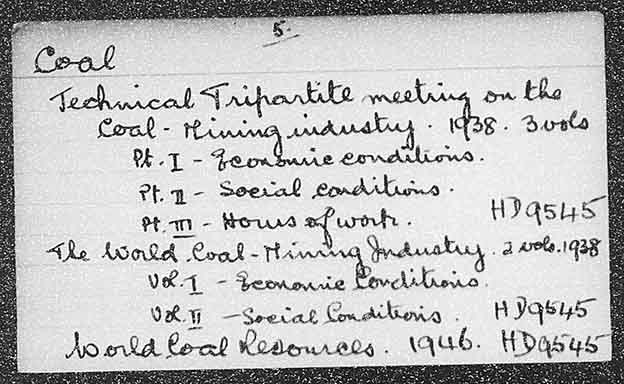 5.
Coal
Technical Tripartite meeting on the
Coal-Mining industry. 1938. 3 vols
Pt. I - Economic conditions.
Pt. II - Social conditions.
Pt. III - Hours of work. HD9545
The World Coal-Mining Industry. 2 vols. 1938
Vol. I - Economic Conditions.
Vol. II - Social Conditions. HD9545
World Coal Resources. 1946. HD9545